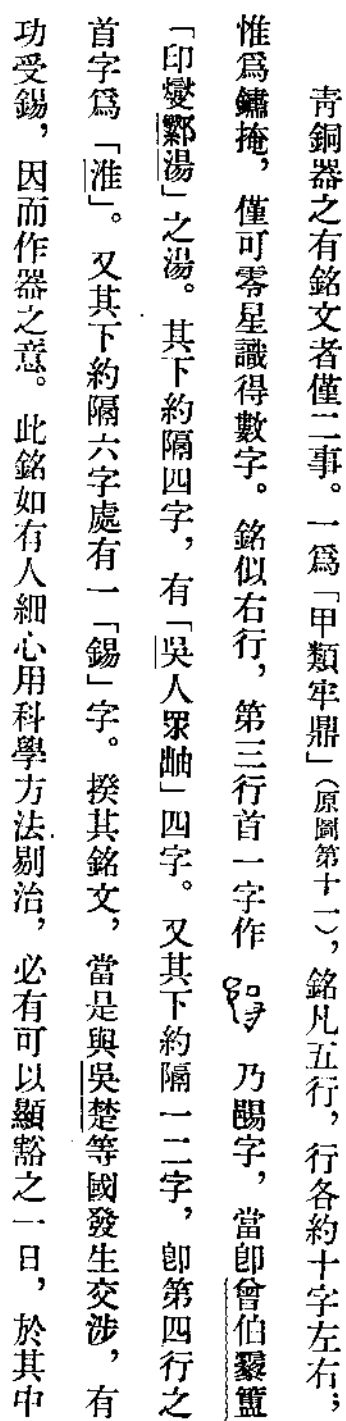 青銅器之有銘文者僅二事。一爲「甲類牢鼎」(原圖第十一),銘凡五行,行各約十字左右;
惟爲鏽掩,僅可零星識得數字。銘似右行,第三行首一字作 乃鍚字,當卽曾伯霥簠
「印燮鄴湯」之湯。其下約隔四字,有「吳人眾䖒」四字。又其下約隔一二字,卽第四行之
首字爲「淮」。又其下約隔六字處有一「錫」字。揆其銘文,當是與吳楚等國發生交涉,有
功受錫,因而作器之意。此銘如有人細心用科學方法剔治,必有可以顯豁之一日,於其中